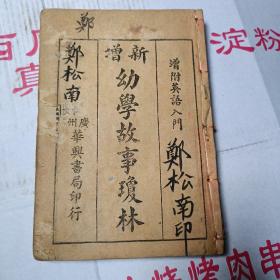 鄭
增新
增附英語入門
幼學故事瓊林
鄭松南
廣州
華興書局印行
鄭松南印
百
真
淀粉
烧烤肉串